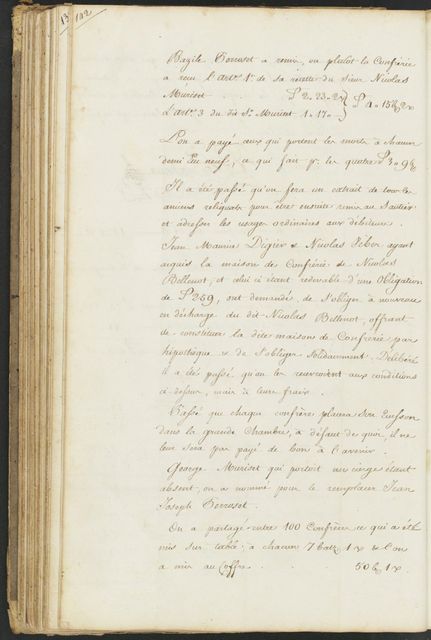 13 102
Bazile Perruset a remis, ou plutot la Confrérie
a reçu l'artle 1er de sa recette du Sieur Nicolas
Muriset
L'artle 3 du dit Sr Muriset 1. 17.
L'on a payé ceux qui portent les morts à chacun
demi Ecu neuf, ce qui fait pr les quatre
Il a été passé qu'on fera un extrait de tous les
anciens reliquats pour être ensuite remis au Sautier
et adresser les usages ordinaires aux débiteurs.
Jean Maurice Digier & Nicolas ayant
acquis la maison de Confrérie de Nicolas
Bellenot, et celui ci étant redevable d'une Obligation
de 259, ont demandé de s'obliger à nouveau
en décharge du dit Nicolas Bellenot, offrant
de constituer la dite maison de Confrérie par
hipothèque & de s'obliger solidairement. Délibéré
il a été passé qu'on les recevroient aux conditions
ci-dessus, mais à leurs frais.
Passé que chaque confrère placera son Ecusson
dans la grande Chambre, à défaut de quoi, il ne
leur sera pas payé de bon à l'avenir.
George Muriset qui portoit un cierge étant
absent, on a nommé pour le remplacer Jean
Joseph Perrusset.
On a partagé entre 100 Confrères ce qui a été
mis sur table, à chacun 7 batz 1 x & l'on
a mis au Coffre . . . 50 1 x.